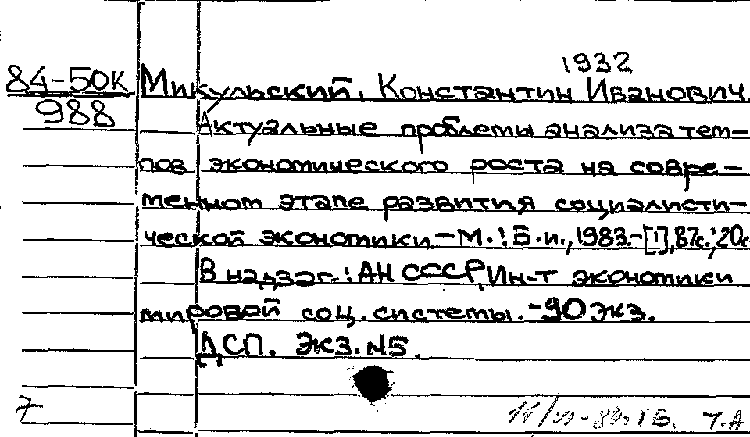 1932
84-50к Микульский, Константин Иванович
988
Актуальные проблемы анализа тем-
пов экономического роста на совре-
менном этапе развития социалисти-
ческой экономики.-М.: Б.и., 1983.-[1], 87с.; 20с
В надзаг.: АН СССР, Ин-т экономики
мировой соц. системы. -90 экз.
ДСП. Экз. N5.
7 Т.А